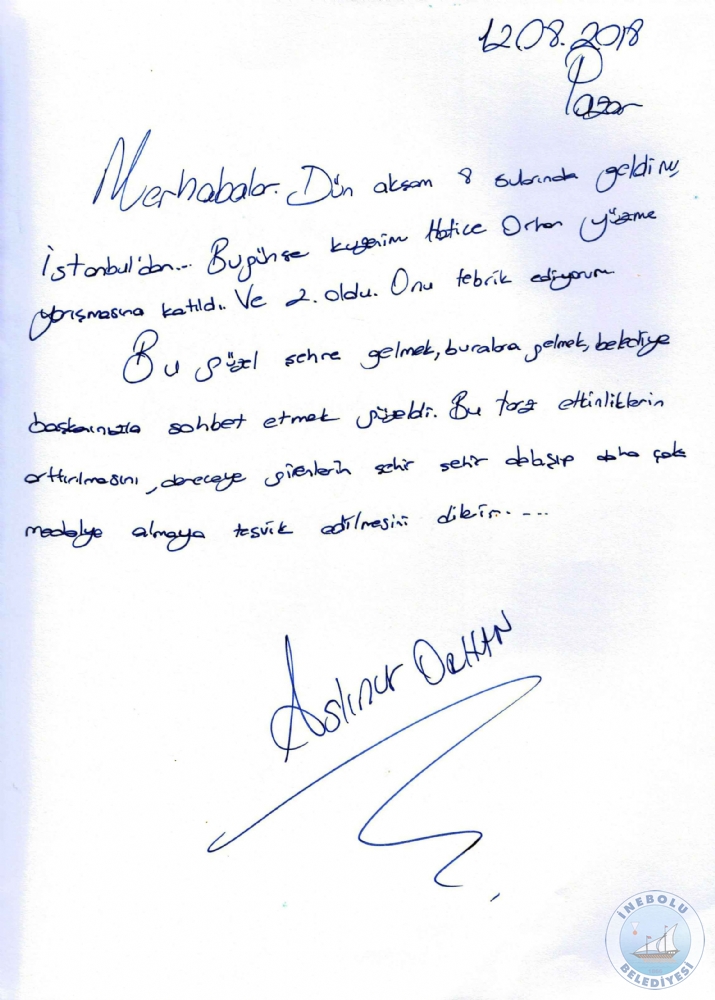 12.08.2018
Pazar
Merhabalar. Dün akşam 8 sularında geldim,
İstanbul'dan... Bugünse kuzenim Hatice Orhan yüzme
yarışmasına katıldı. Ve 2. oldu. Onu tebrik ediyorum
Bu güzel şehre gelmek, buralara gelmek, belediye
başkanınızla sohbet etmek güzeldi. Bu tarz etkinliklerin
arttırılmasını, dereceye girenlerin şehir şehir dolaşıp daha çok
madalya almaya teşvik edilmesini dilerim....
Aslınur ORHAN
İNEBOLU
BELEDİYESİ